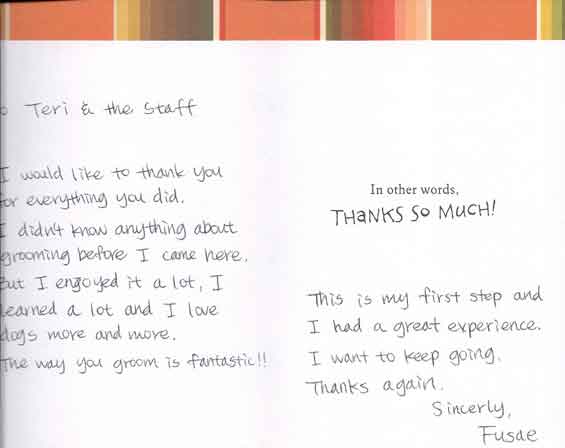 o Teri & the staff
I would like to thank you
or everything you did.
I didn't know anything about
grooming before I came here.
But I enjoyed it a lot, I
learned a lot and I love
dogs more and more.
The way you groom is fantastic!!
In other words,
THANKS SO MUCH!
This is my first step and
I had a great experience.
I want to keep going.
Thanks again.
Sincerely,
Fusae